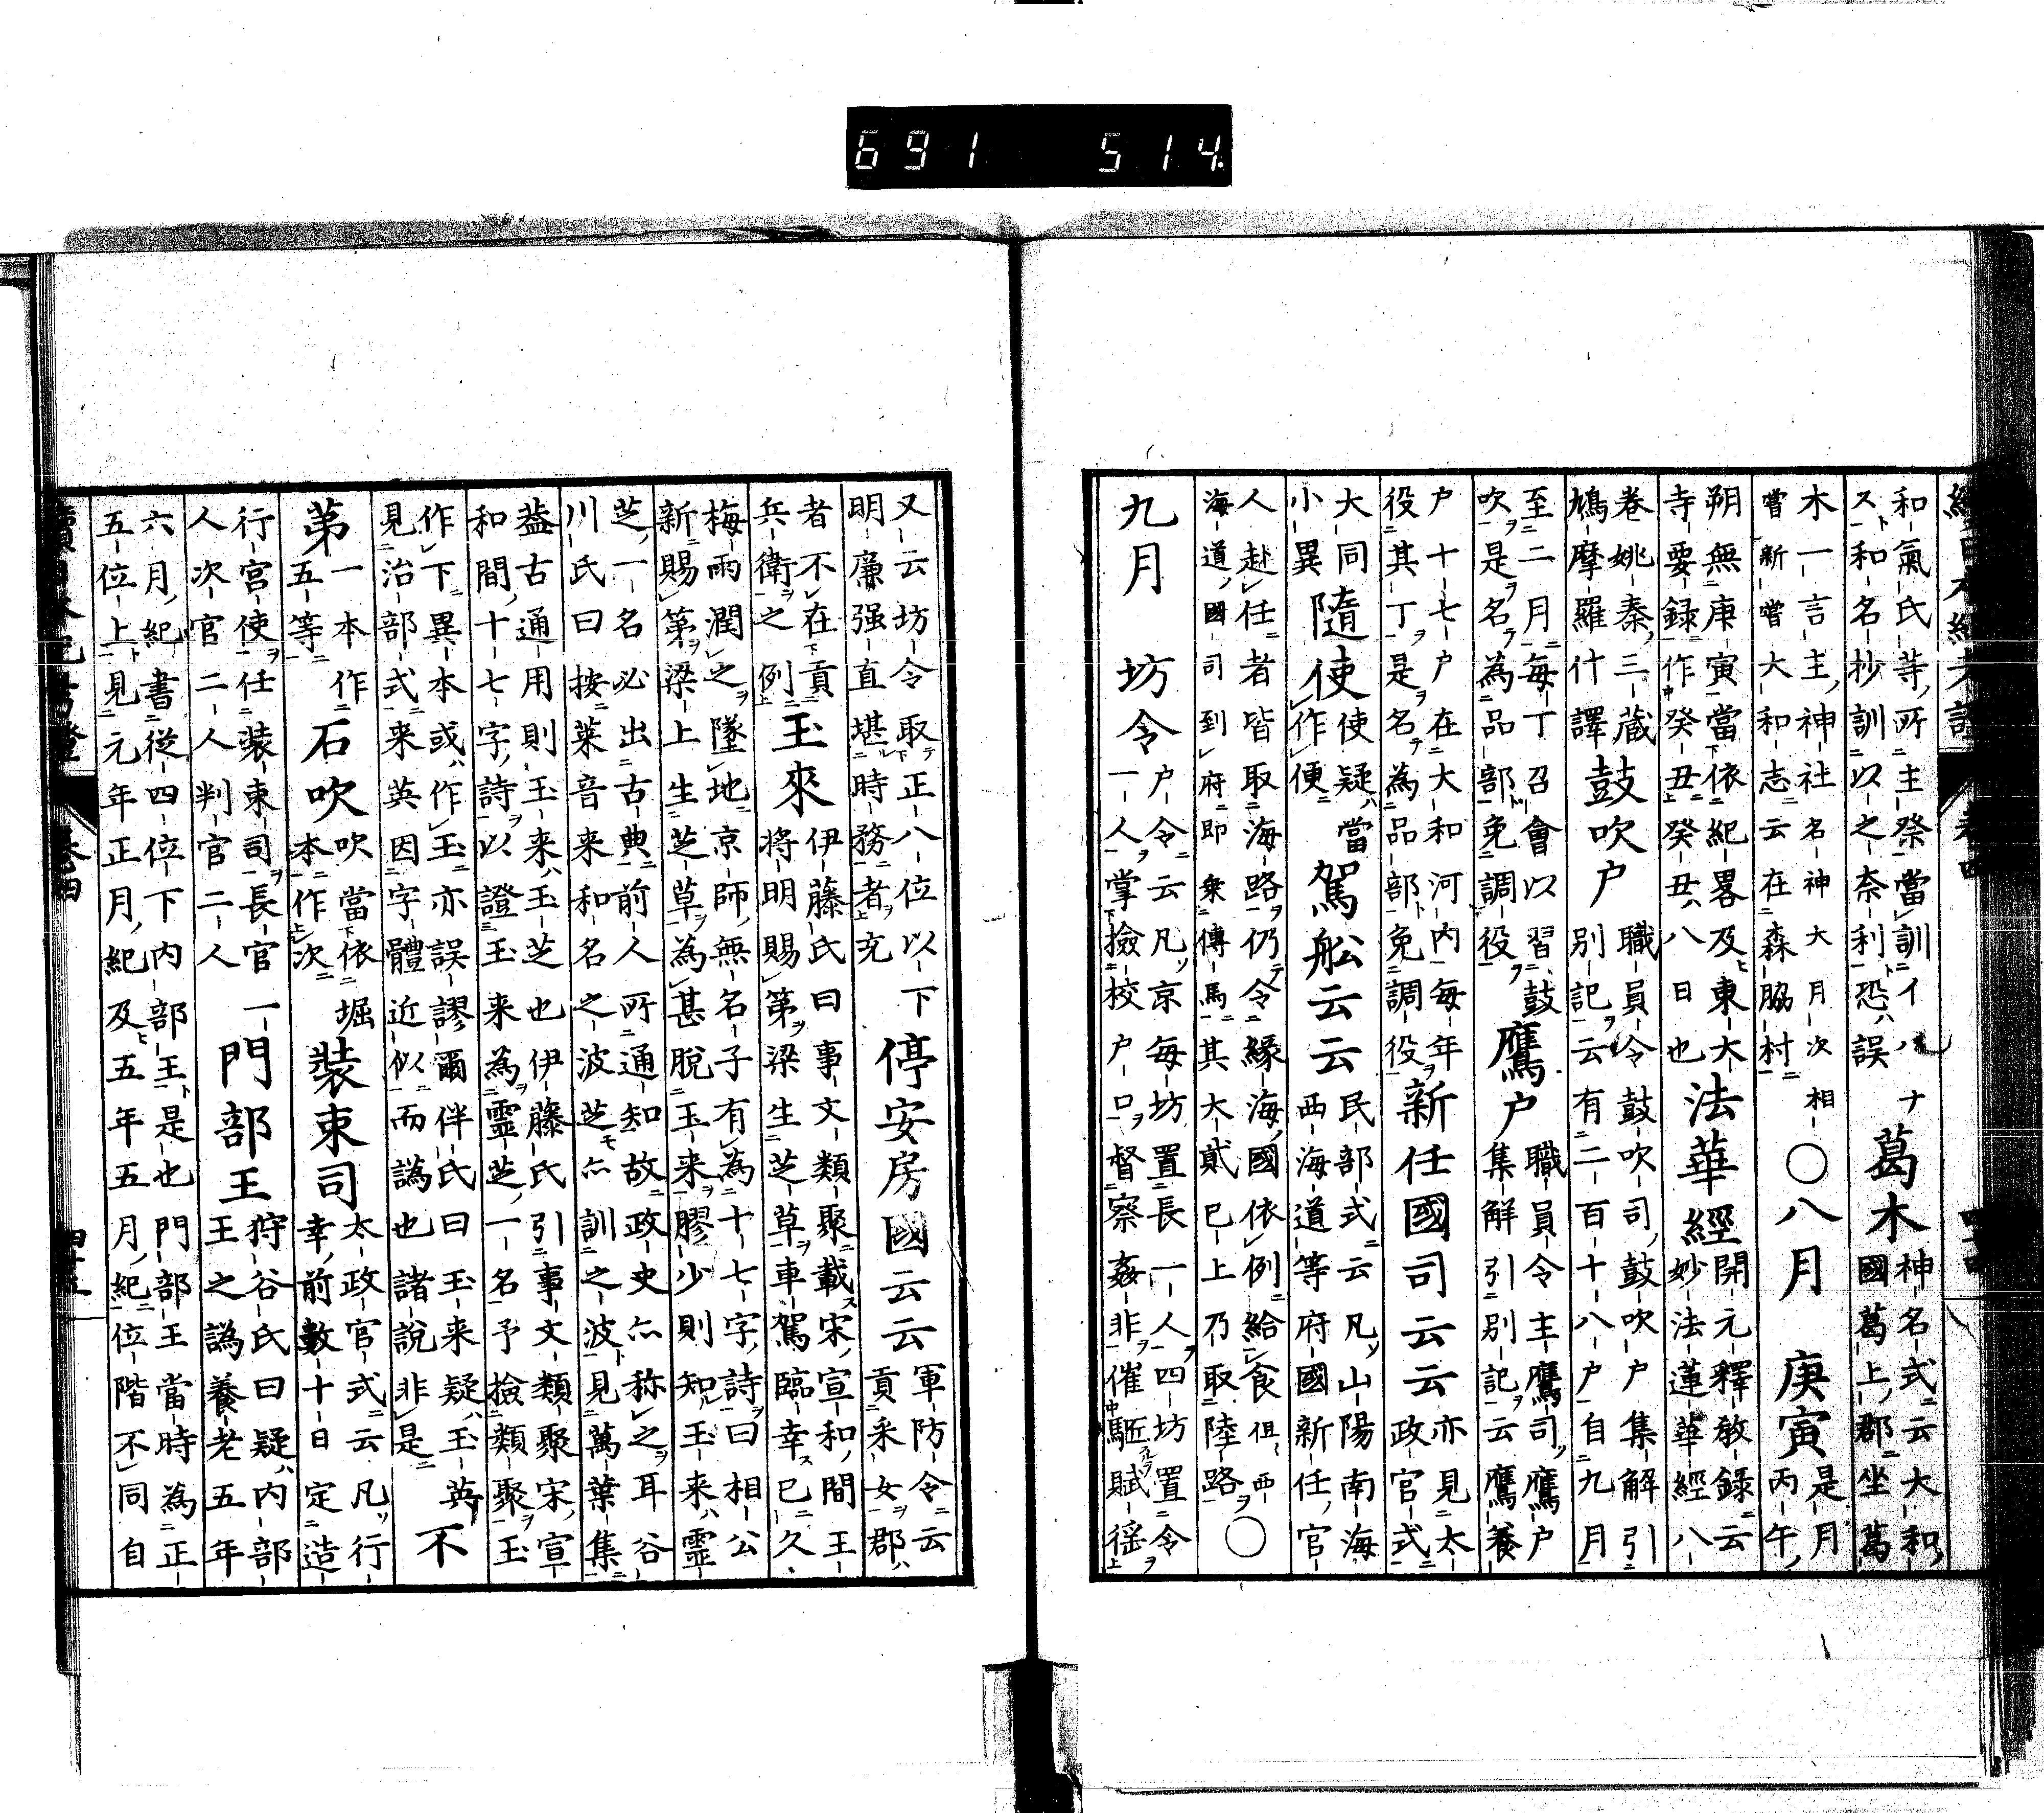 691 514
續日本紀考證 卷四 四十四
和氣氏等所主祭當訓イハナ
ス和名抄訓以之奈利恐誤
葛木
神名式云大和
國葛上郡坐葛
木一言主神社名神大月次相
嘗新嘗大和志云在森脇村
○八月 庚寅
是月
丙午
朔無庚寅當依紀畧及東大
寺要録作癸丑癸丑八日也
法華經
開元釋敎録云
妙法蓮華經八
卷姚秦三藏
鳩摩羅什譯
鼓吹戸
職員令鼓吹司鼓吹戸集解引
別記云有二百十八戸自九月
至二月每丁召會以習鼓
吹是名為品部免調役
鷹戸
職員令主鷹司鷹戸
集解引別記云鷹養
戸十七戸在大和河内每年
役其丁是名為品部免調役
新任國司云云
亦見太
政官式
大同
小異
隨使
使疑當
作便
駕船云云
民部式云凡山陽南海
西海道等府國新任官
人赴任者皆取海路仍令緣海國依例給食但西
海道國司到府即乘傳馬其大貳已上乃取陸路
○
九月
坊令
戸令云凡京每坊置長一人四坊置令
一人掌撿校戸口督察姦非催駈賦徭
又云坊令取正八位以下
明廉强直堪時務者充
停安房國云云
軍防令云
貢釆女郡
者不在貢
兵衛之例
玉來
伊藤氏曰事文類聚載宋宣和間王
將明賜第梁生芝草車駕臨幸已久
梅雨潤之墜地京師無名子有為十七字詩曰相公
新賜第梁上生芝草為甚脫玉來膠少則知玉来靈
芝一名必出古典前人所通知故政史亦称之耳谷
川氏曰按萊音来和名之波芝亦訓之波見萬葉集
葢古通用則玉来玉芝也伊藤氏引事文類聚宋宣
和間十七字詩以證玉来為靈芝一名予撿類聚玉
作下異本或作玉亦誤謬爾伴氏曰玉来疑玉英
見治部式来英因字體近似而譌也諸說非是
不
第
一本作
五等
石吹
吹當依堀
本作次
裝束司
太政官式云凡行
幸前數十日定造
行宮使任裝束司長官一
人次官二人判官二人
門部王
狩谷氏曰疑内部
王之譌養老五年
六月紀書從四位下内部王是也門部王當時為正
五位上見元年正月紀及五年五月紀位階不同自
續日本紀考證 卷四 四十五